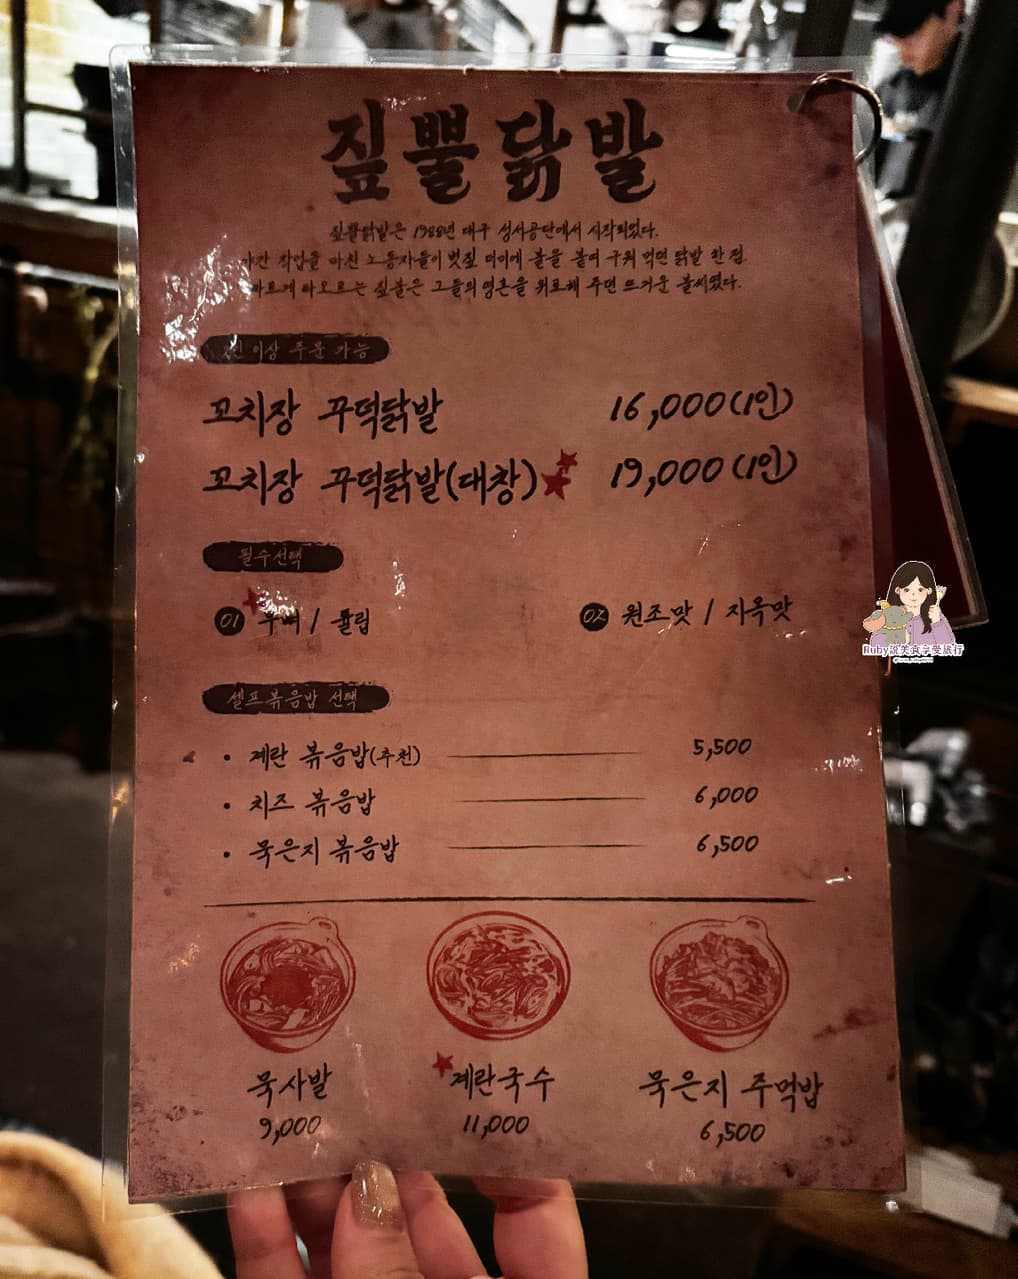 짚뿔닭발
짚뿔닭발은 1988년 대구 성서공단에서 시작되었다.
작업을 마친 노동자들이 볏짚 더미에 불을 붙여 구워 먹던 닭발 한 점.
타오르는 짚불은 그들의 영혼을 위로해 주던 뜨거운 불씨였다.
이상 주문 가능
꼬치장 꾸덕닭발 16,000(1인)
꼬치장 꾸덕닭발(대창) 19,000(1인)
필수선택
01 / 튤립 02 원조맛 / 지옥맛
셀프볶음밥 선택
• 계란 볶음밥(추천) 5,500
• 치즈 볶음밥 6,000
• 묵은지 볶음밥 6,500
묵사발 계란국수 묵은지 주먹밥
9,000 11,000 6,500